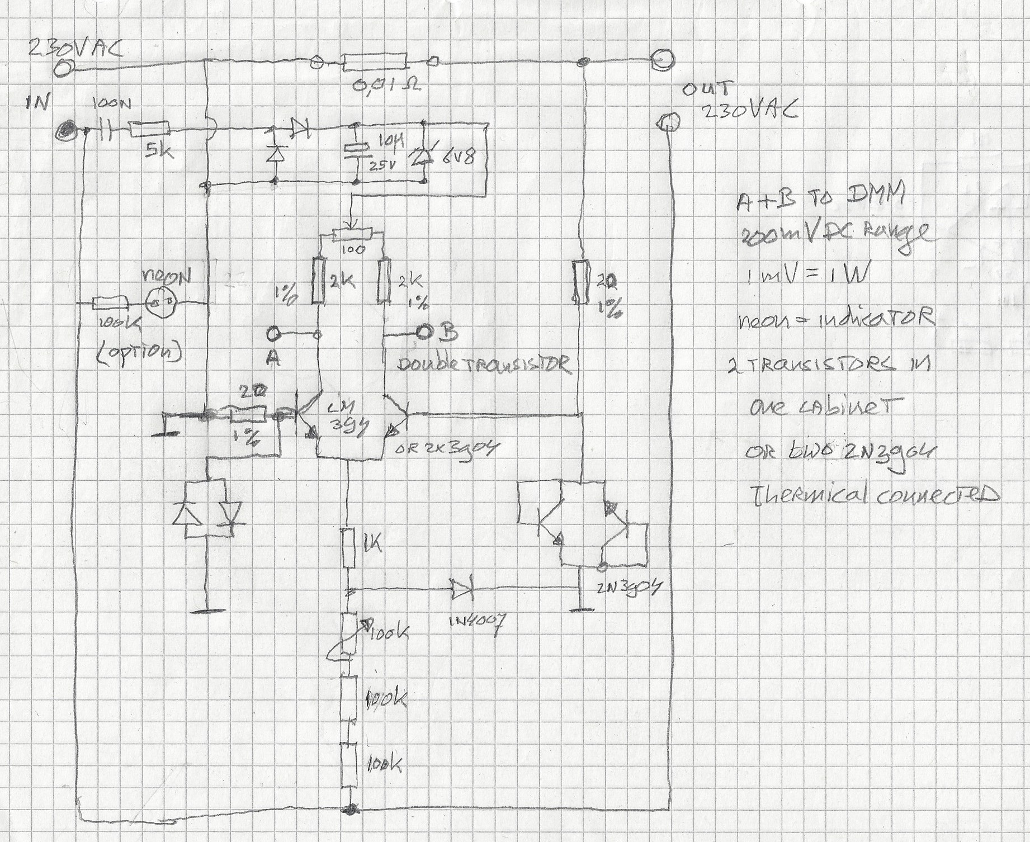 230VAC
0,01 Ω
OUT
230VAC
IN
100N
5k
10µ
25V
6V8
A+B TO DMM
200mV DC Range
1mV = 1W
neon = indicATOR
2 TRANSISTORS IN
one cabinet
OR two 2N3904
Thermical connected
100
1%
2k
2k
1%
2Ω
1%
neoN
100k
(option)
A
B
Double TRANSISTOR
2Ω
1%
LM
394
OR 2x3904
1K
2N3904
1N4007
100k
100k
100k